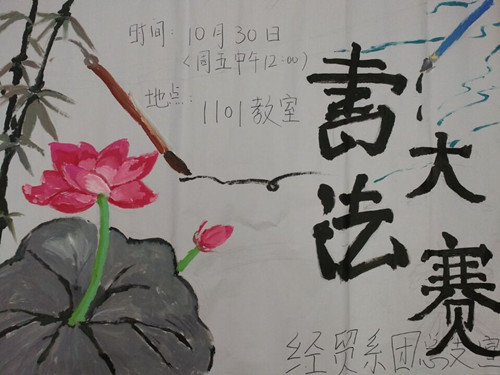 时间：10月30日
（周五中午12:00）
地点：1101教室
書法
大赛
经贸系团总支宣